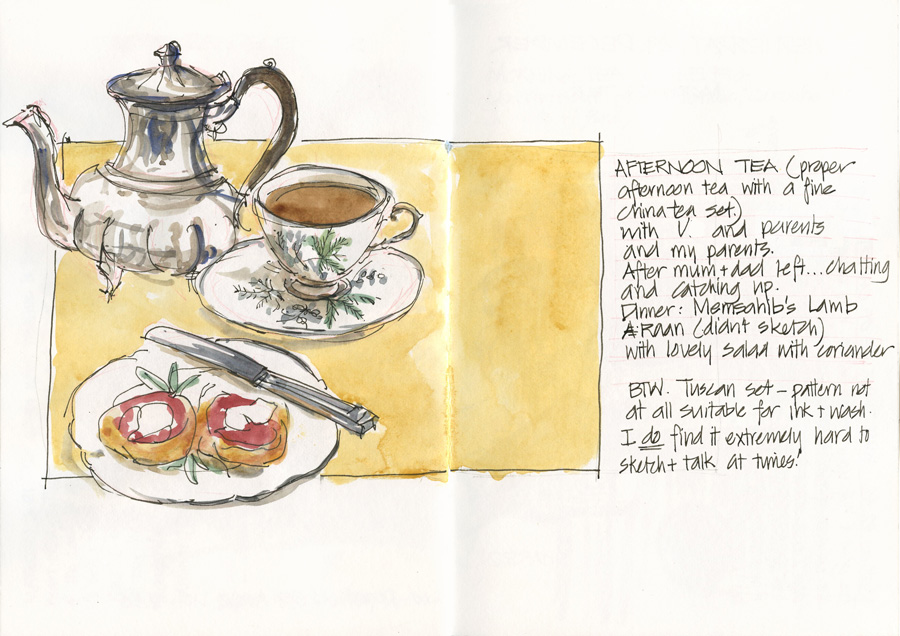 AFTERNOON TEA (proper
afternoon tea with a fine
china tea set.)
with V. and parents
and my parents.
After mum+dad left...chatting
and catching up.
Dinner: Memsahib's Lamb
Raan (didn't sketch)
with lovely salad with coriander
BTW. Tuscan set - pattern not
at all suitable for ink + wash.
I do find it extremely hard to
sketch + talk at times!